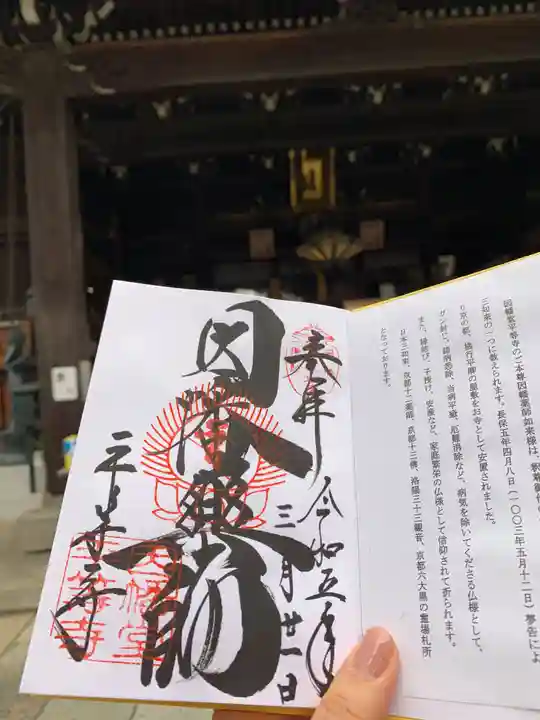 奉拝
令和五年
三月廿一日
因幡薬師
平等寺
因幡堂
平等寺
因幡堂平等寺のご本尊因幡薬師如来様は、
三如来の一つに数えられます。長保五年四月八日(一〇〇三年五月十二日)夢告によ
り京の駅、橘行平卿の屋敷をお寺として安置されました。
ガン封じ、諸病悉除、当病平癒、厄難消除など、病気を除いてくださる仏様として、
また、縁結び、子授け、安産など、家庭繁栄の仏様として信仰されて折られます。
日本三如来、京都十二薬師、京都十三佛、洛陽三十三観音、京都六大黒の霊場札所
となっております。